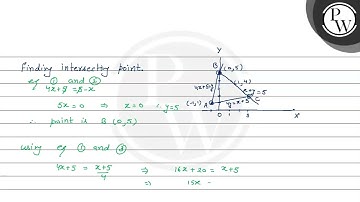 PW
Finding intersecting point.
eq ① and ②
4x+5 = 5-x
5x=0 ⇒ x=0 ∴ y=5
∴ point is B (0,5)
using eq ① and ③
4x+5 = x+5/4 ⇒ 16x+20 = x+5
⇒ 15x
Y
B (0,5)
(1,4)
A
C
0 1
X